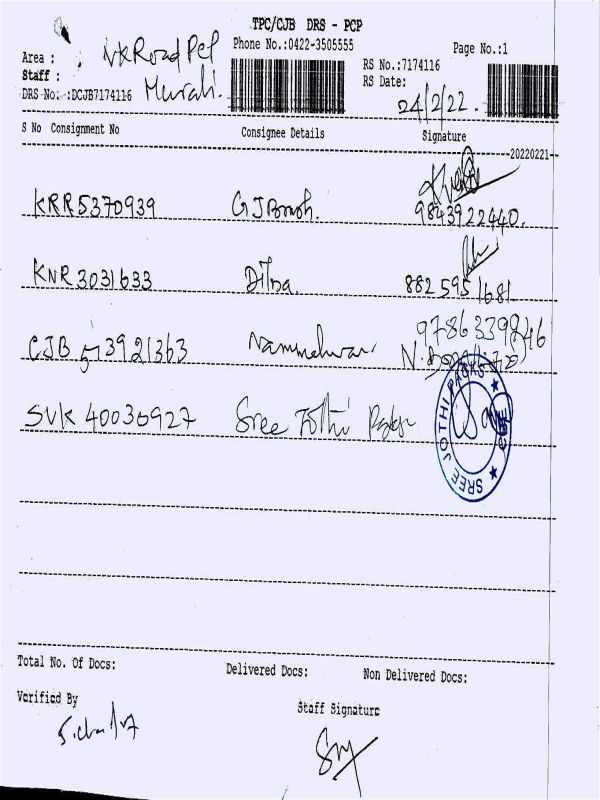 TPC/CJB DRS - PCP
Phone No.:0422-3505555
Page No.:1
Area : NK Road Pcp
Staff : Murali.
DRS No. :DCJB7174116
RS No.:7174116
RS Date:
24/2/22.
S No Consignment No Consignee Details Signature
20220221
KRR5370939 9843922440.
KNR3031633 882 595 1681
9786339846
CJB 513921363
SVK 40030927 Sree Jothi
SREE JOTHI PACKS ★ CBE ★
Total No. Of Docs: Delivered Docs: Non Delivered Docs:
Verified By
Staff Signature